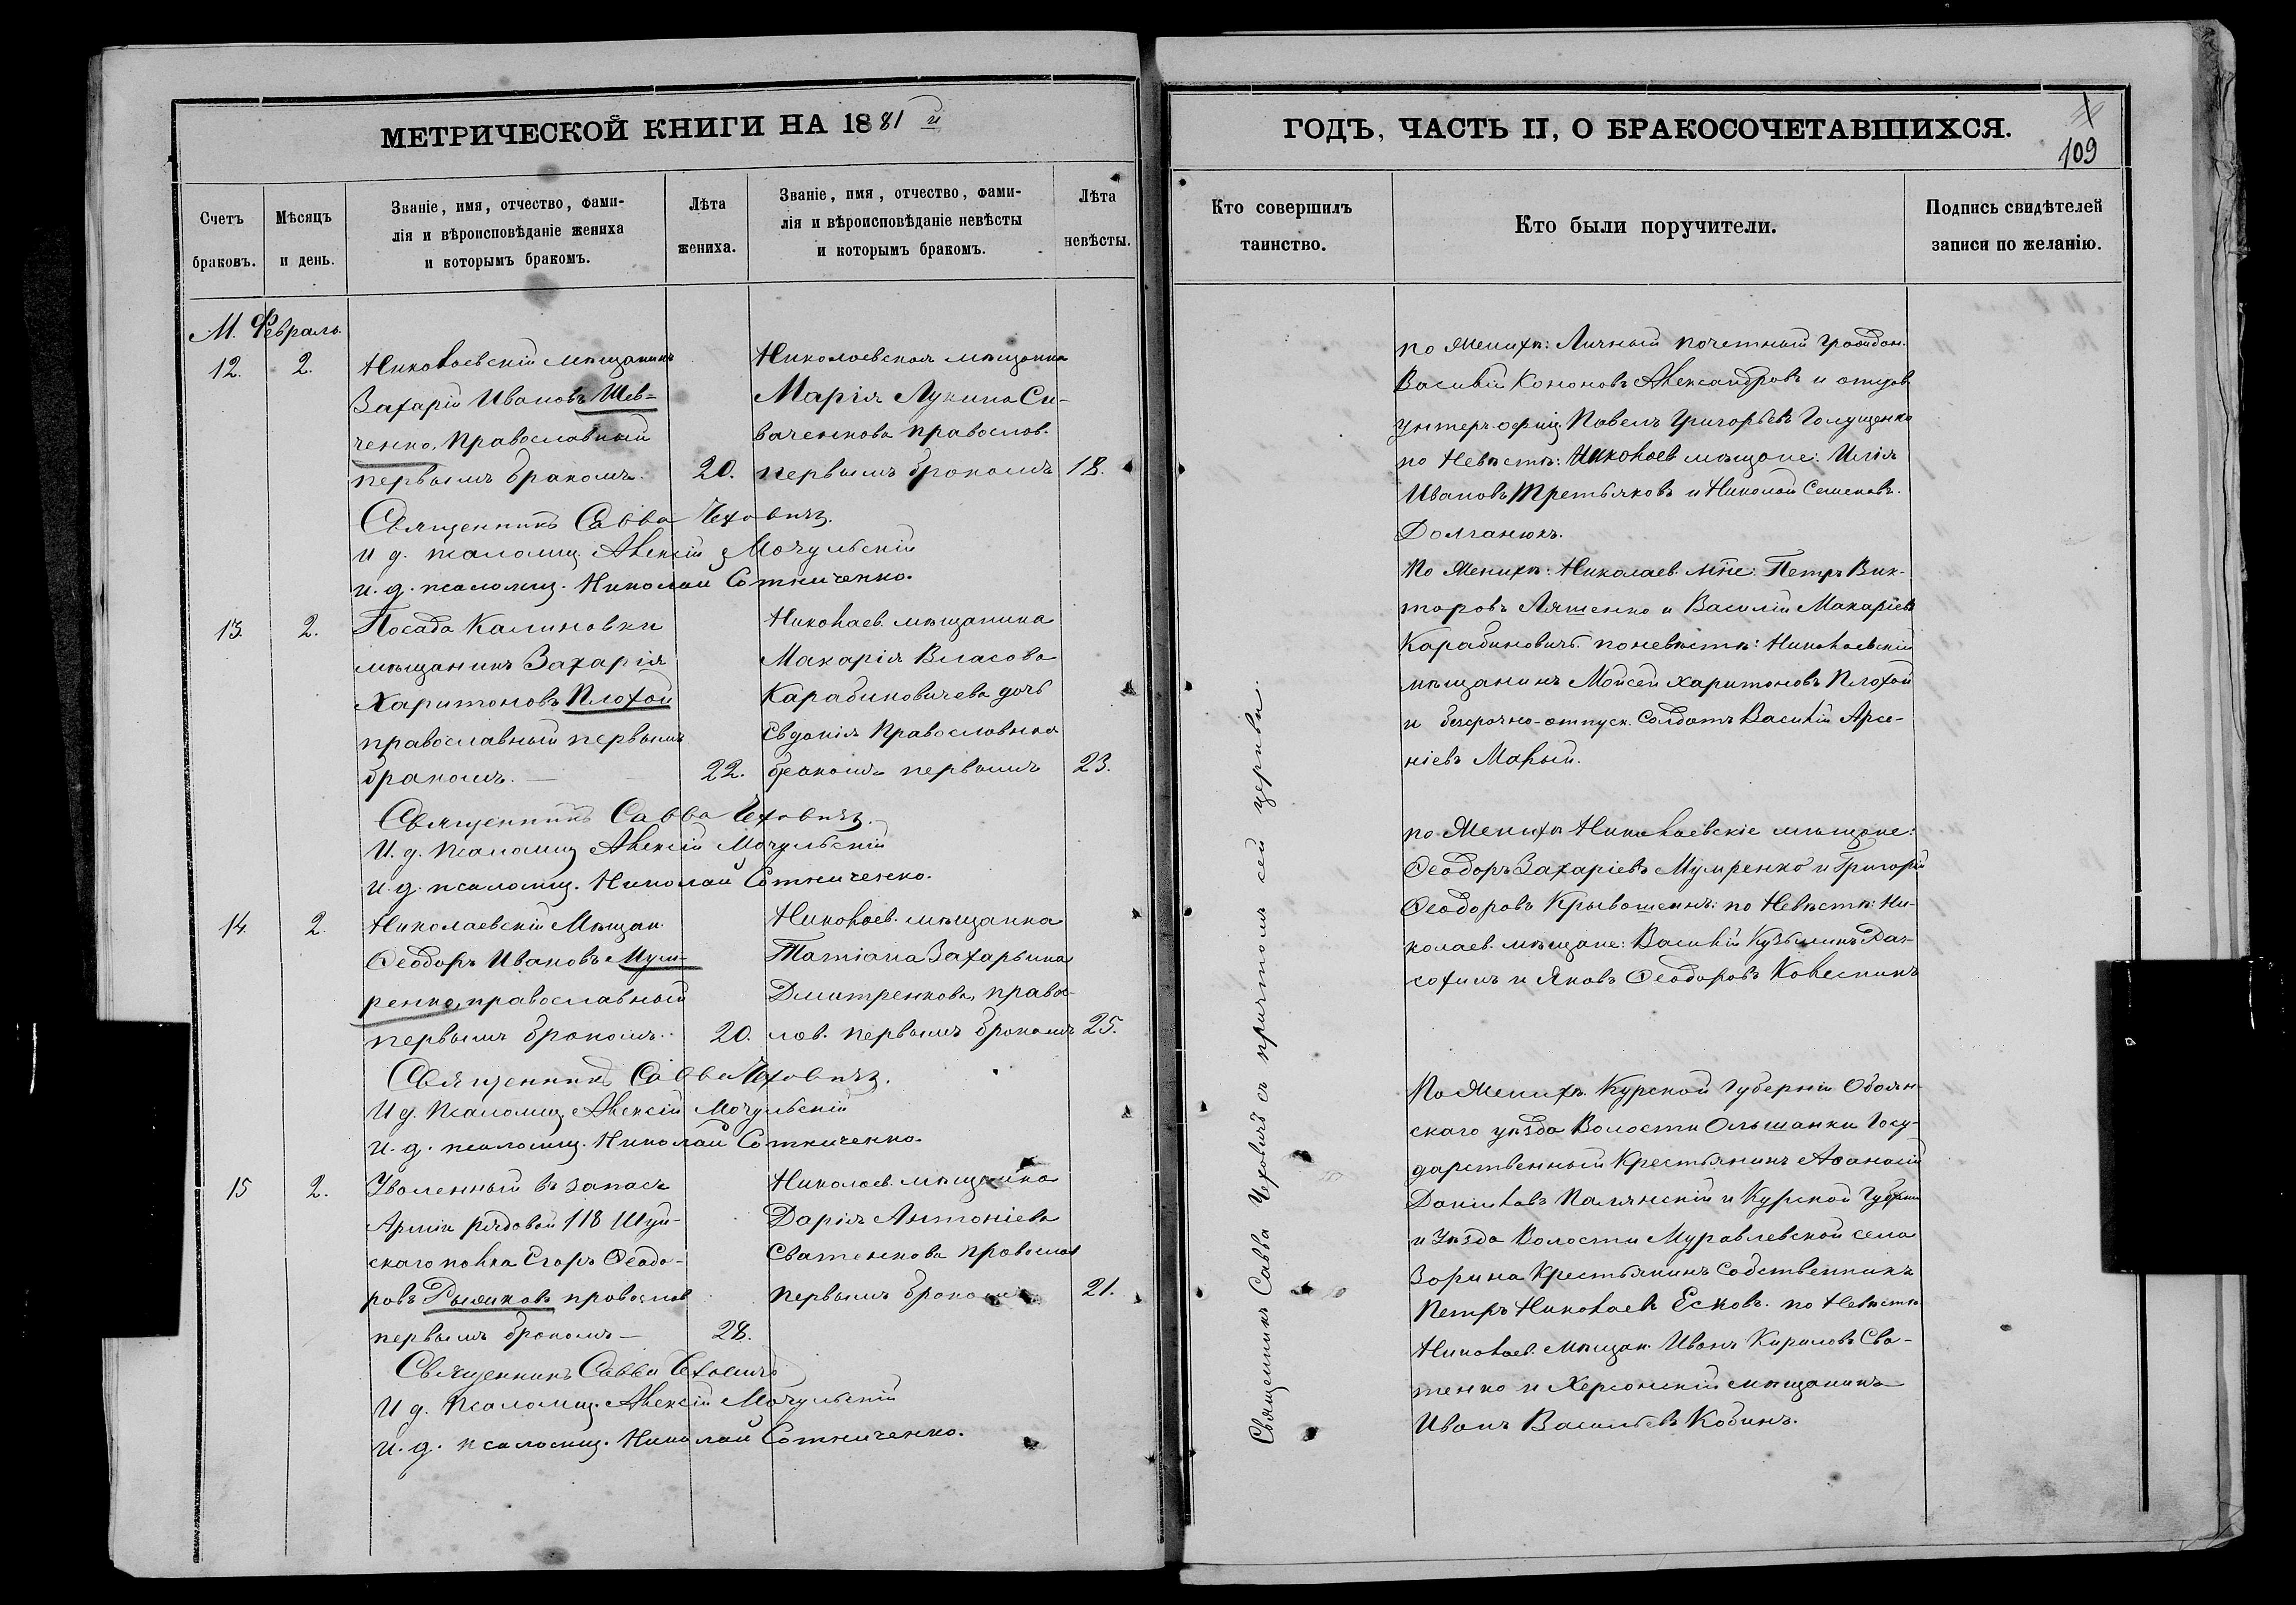 МЕТРИЧЕСКОЙ КНИГИ НА 1881 й
Счетъ браковъ.
Мѣсяцъ и день.
Званіе, имя, отчество, фами-
лія и вѣроисповѣданіе жениха
и которымъ бракомъ.
Лѣта
жениха.
Званіе, имя, отчество, фами-
лія и вѣроисповѣданіе невѣсты
и которымъ бракомъ.
Лѣта
невѣсты.
М. Февраль.
12. 2.
Николаевскій мѣщанинъ
Захарій Ивановъ Шев-
ченко, православный
первымъ бракомъ. 20.
Николаевская мѣщанка
Марія Лукина Си-
ваченкова православ.
первымъ бракомъ 18.
Священникъ Савва Чеховичъ.
И д. псаломщ. Алексій Мочульскій
и. д. псаломщ. Николай Сотниченко.
13. 2.
Посада Калиновки
мѣщанинъ Захарія
Харитоновъ Плохой
православный первымъ
бракомъ. — 22.
Николаев. мѣщанина
Макарія Власова
Карабиновичева дочь
Евдокія Православная
бракомъ первымъ 23.
Священникъ Савва Чеховичъ.
И. д. Псаломщ Алексій Мочульскій
и. д. псаломщ. Николай Сотниченко.
14. 2.
Николаевскій Мѣщан.
Ѳеодоръ Ивановъ Мум-
ренко, православный
первымъ бракомъ. 20.
Николаев. мѣщанка
Татіана Захарьина
Дмитренкова, правос-
лов. первымъ бракомъ 25.
Священникъ Савва Чеховичъ.
И д. Псаломщ Алексій Мочульскій
и. д. псаломщ. Николай Сотниченко.
15 2.
Уволенный въ запасъ
Арміи рядовой 118 Шуй-
скаго полка Егоръ Ѳеодо-
ровъ Рыжиковъ провослов
первымъ бракомъ — 28.
Николаев. мѣщанка
Дарія Антоніева
Сватенкова провослов
первымъ бракомъ 21.
Священникъ Савва Чеховичъ
И д. Псаломщ. Алексій Мочульскій
и. д. псаломщ. Николай Сотниченко.
ГОДЪ, ЧАСТЬ II, О БРАКОСОЧЕТАВШИХСЯ.
109
Кто совершилъ
таинство.
Кто были поручители.
Подпись свидѣтелей
записи по желанію.
Священникъ Савва Чеховичъ съ причтомъ сей церкви.
по Женихѣ: Личный почетный граждан.
Василій Кононовъ Александровъ и отстав
унтеръ-офиц. Павелъ Григорьевъ Голущенко
по Невѣстѣ: Николаев мѣщане: Илія
Ивановъ Третьяковъ и Николай Семеновъ.
Долганюкъ.
По Женихѣ: Николаев. мѣщне: Петръ Вик-
торовъ Ляшенко и Василій Макаріевъ
Карабиновичъ. по невѣстѣ: Николаевскій
мѣщанинъ Мойсей Харитоновъ Плохой
и безсрочно-отпуск. Солдатъ Василій Арсе-
ніевъ Малый.
по Женихѣ Николаевскіе мѣщане:
Ѳеодоръ Захаріевъ Мумренко и Григорій
Ѳеодоровъ Крывошеинъ: по Невѣстѣ: Ни-
колаев. мѣщане: Василій Кузьминъ
и Яковъ Ѳеодоровъ
По Женихѣ. Курской Губерніи Обоян-
скаго уѣзда Волости Ольшанки Госу-
дарственный Крестьянинъ Аѳанасій
Даниловъ и Курской Губерніи
и Уѣзда Волости Муравлевской села
Зорина Крестьянинъ Собственникъ
Петръ Николаевъ Есковъ. по Невѣстѣ
Николаев. Мѣщан. Иванъ Кириловъ Сва-
тенко и Херсонскій мѣщанинъ
Иванъ Васильевъ Кобинъ.